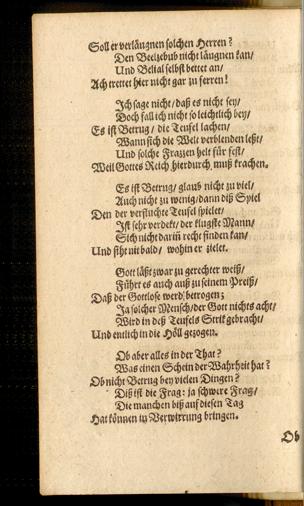 Soll er verläugnen solchen Herren?
Den Beelzebub nicht läugnen kan/
Und Belial selbst bettet an/
Ach trettet hier nicht gar zu ferren!
Ich sage nicht/ daß es nicht sey/
Doch fall ich nicht so leichtlich bey/
Es ist Betrug/ die Teufel lachen/
Wann sich die Welt verblenden lest/
Und solche Frazzen helt für fest/
Weil Gottes Reich hierdurch muß krachen.
Es ist Betrug/ glaub nicht zu viel/
Auch nicht zu wenig/ dann diß Spiel
Den der verfluchte Teufel spielet/
Ist sehr verdekt/ der klugste Mann/
Sich nicht dariñ recht finden kan/
Und siht nit bald/ wohin er zielet.
Gott läst zwar zu gerechter weiß/
Führt es auch auß zu seinem Preiß/
Daß der Gottlose werd betrogen;
Ja solcher Mensch/ der Gott nichts acht/
Wird in deß Teufels Strik gebracht/
Und entlich in die Höll gezogen.
Ob aber alles in der That?
Was einen Schein der Wahrheit hat?
Ob nicht Betrug bey vielen Dingen?
Diß ist die Frag: ja schwere Frag/
Die manchen biß auf diesen Tag
Hat können in Verwirrung bringen.
Ob